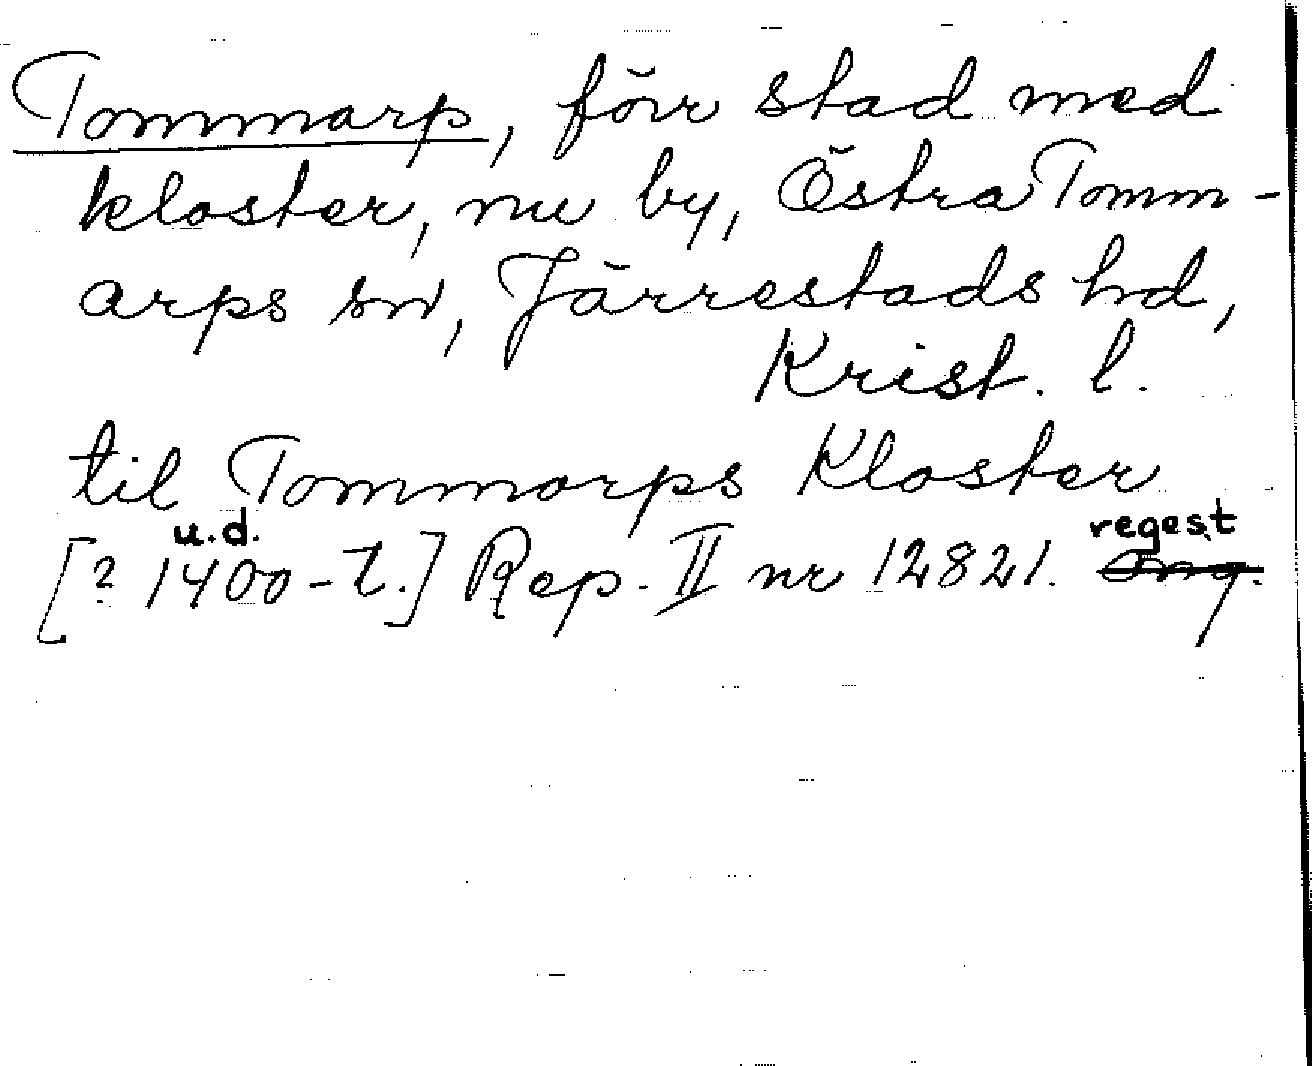 Tommarp, förr stad med
kloster, nu by, Östra Tomm-
arps sn, Järrestads hd,
Krist. l.
til Tommorps Kloster
u.d. regest
[? 1400-t.] Rep. II nr 12821.